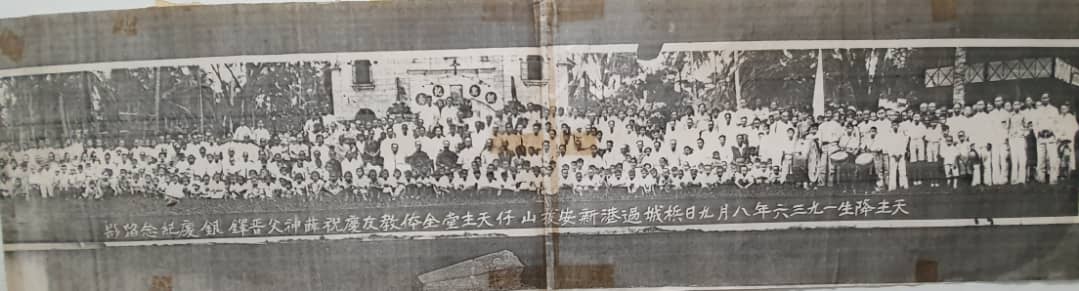 天主降生一九三六年八月九日梹城過港新安山仔天主堂全体教友慶祝薛神父晋鐸銀慶紀念影